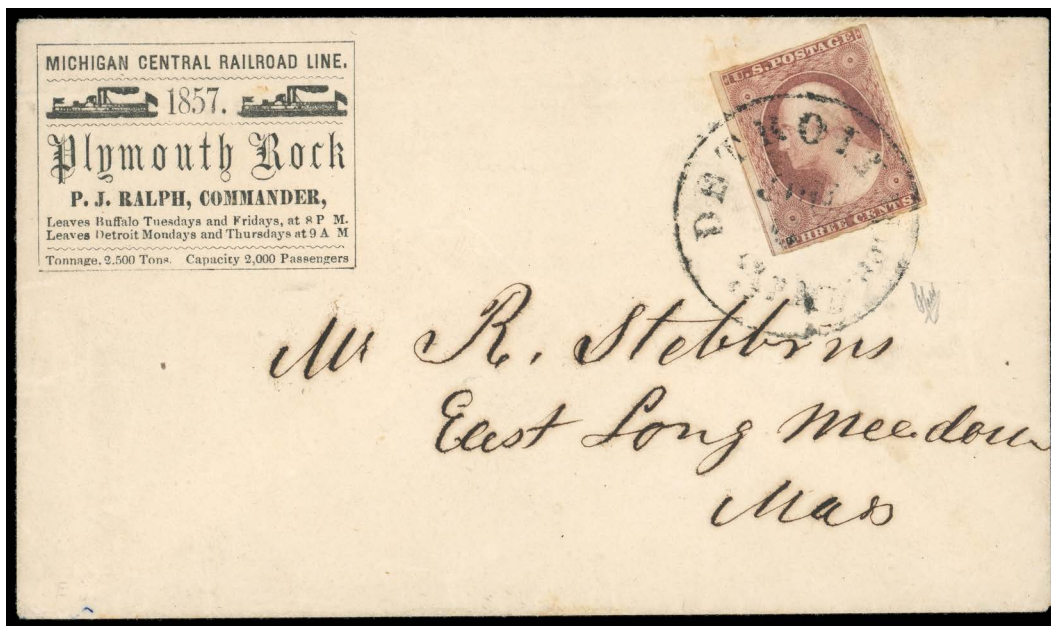 MICHIGAN CENTRAL RAILROAD LINE.
1857.
Plymouth Rock
P. J. RALPH, COMMANDER,
Leaves Buffalo Tuesdays and Fridays, at 8 P M.
Leaves Detroit Mondays and Thursdays at 9 A M
Tonnage, 2.500 Tons. Capacity 2,000 Passengers
U.S. POSTAGE
DETROIT
THREE CENTS
Mr R. Stebbins
East Long Meadow
Mass